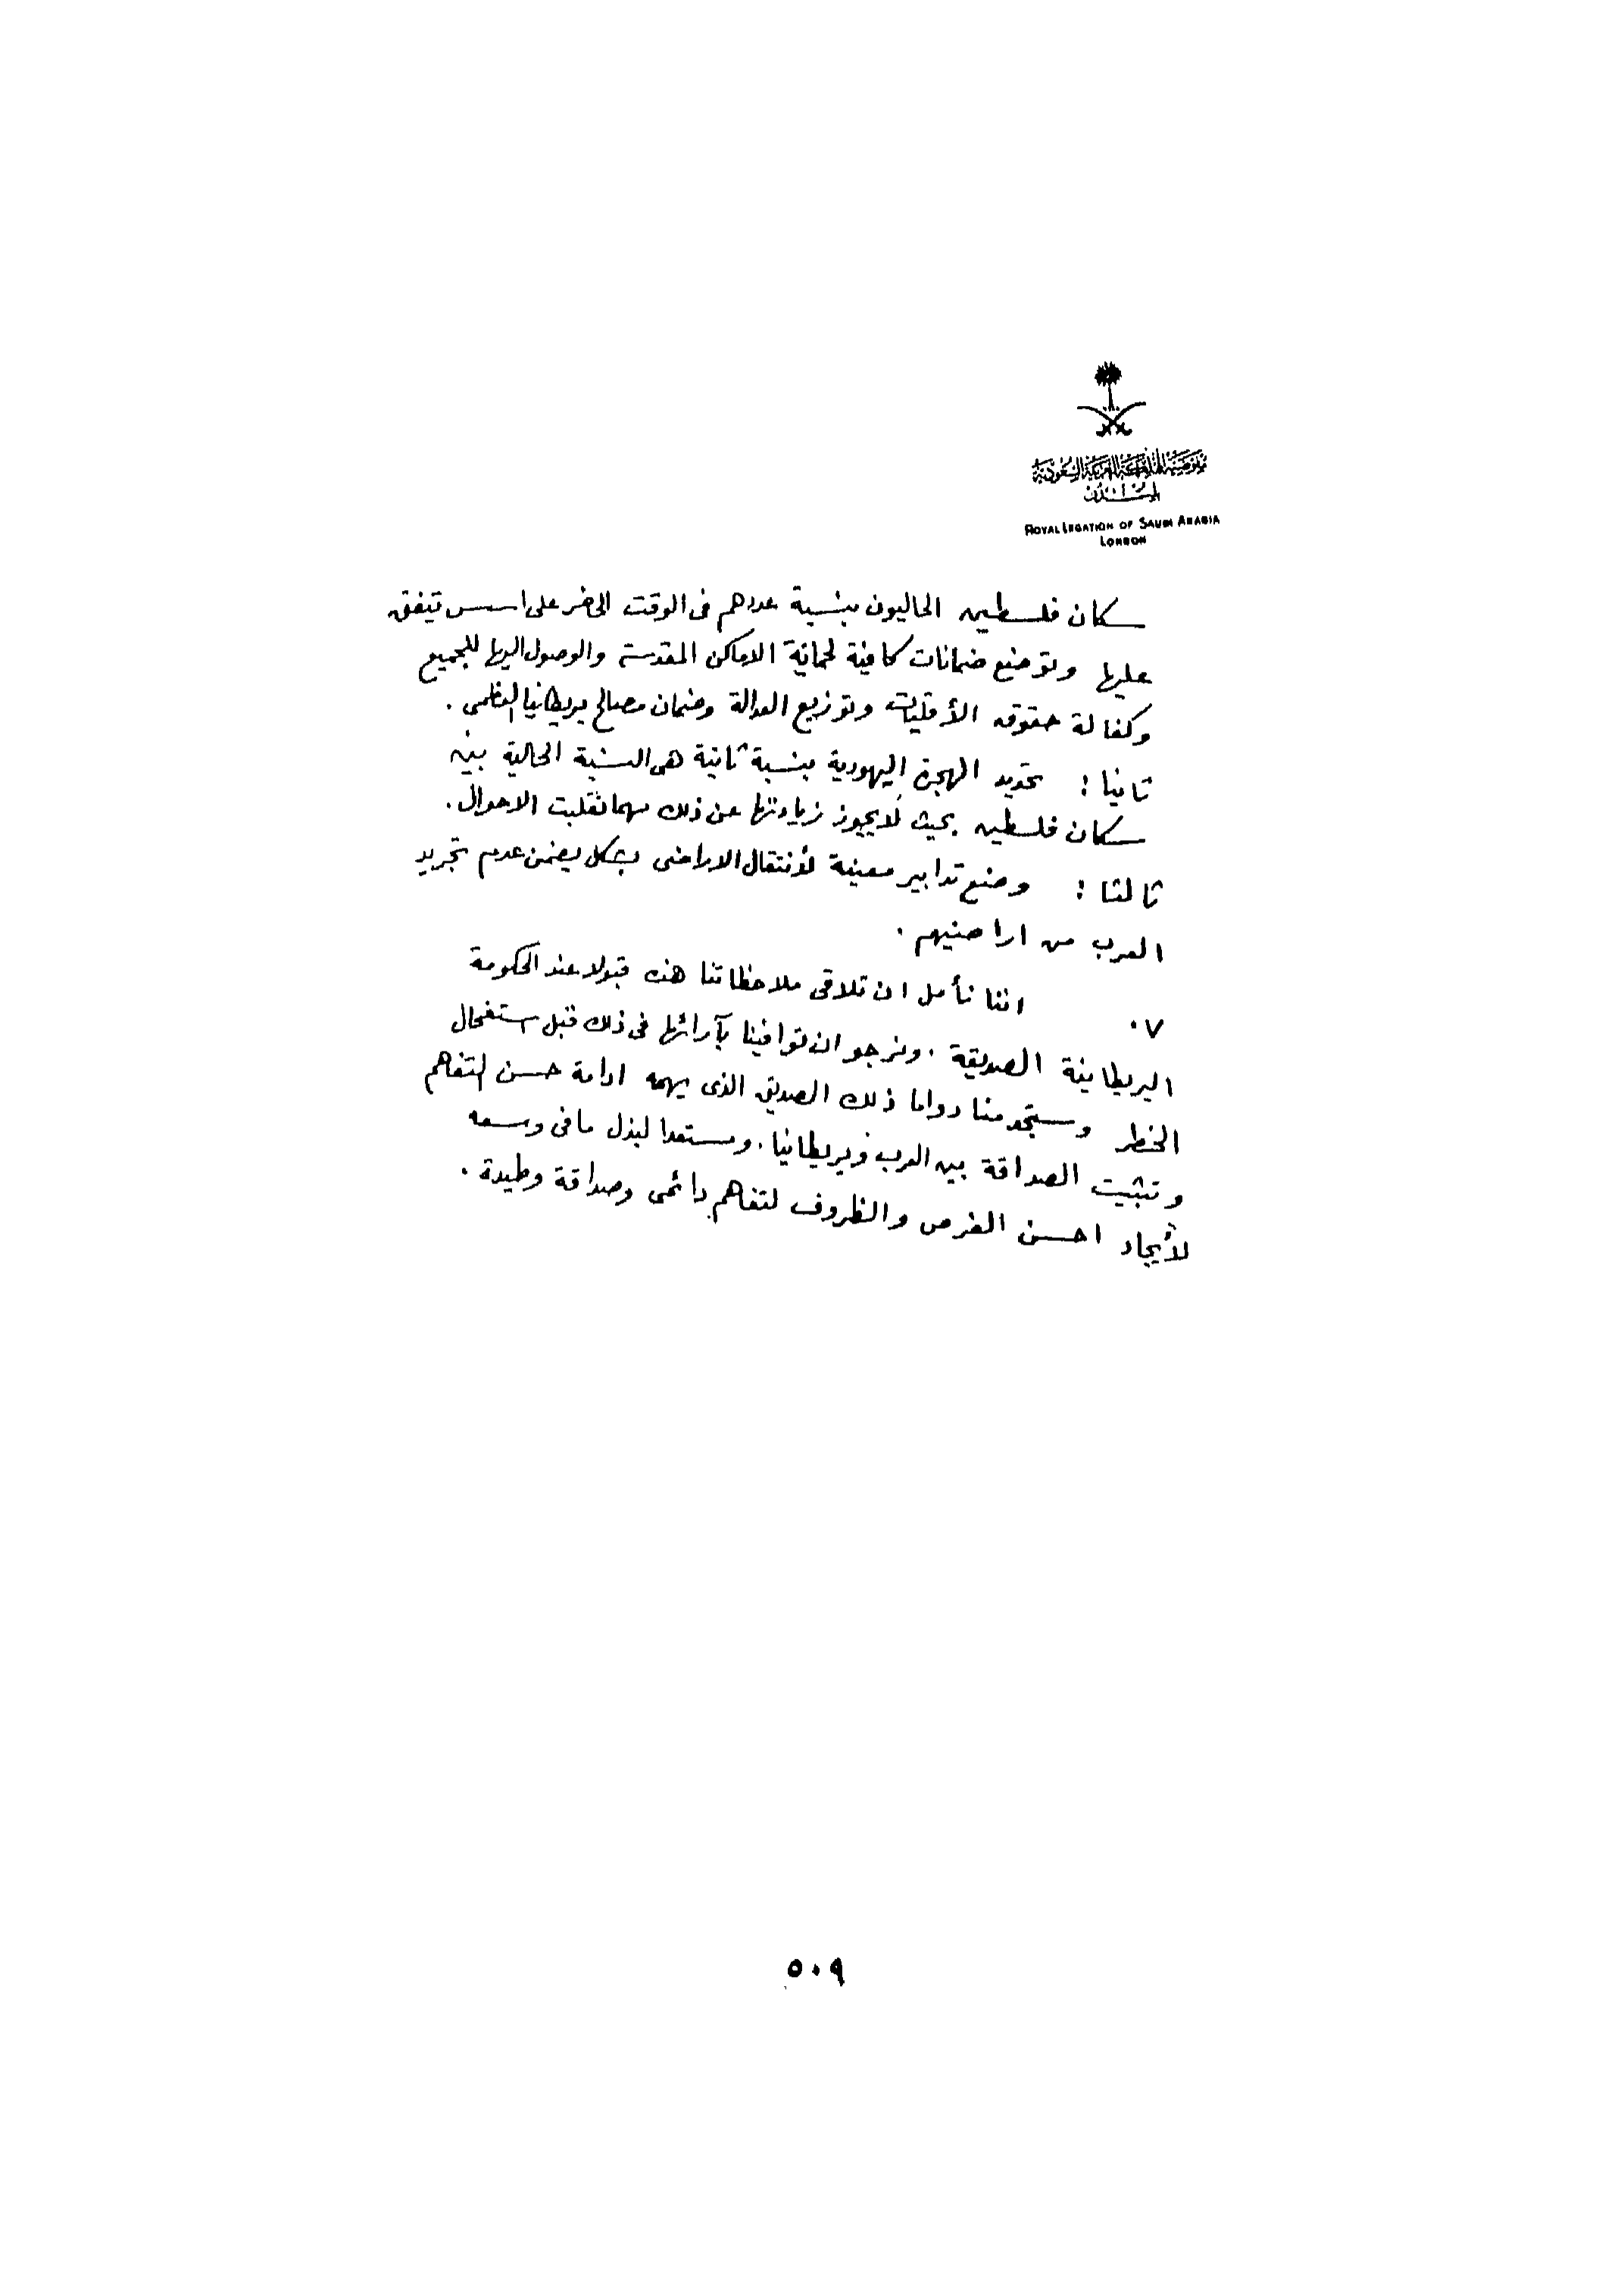 مفوضية المملكة العربية السعودية
بلندن
ROYAL LEGATION OF SAUDI ARABIA
LONDON
سكان فلسطين الحاليون بنسبة عددهم فى الوقت الحاضر على اسس تيفق
عليها وتوضع ضمانات كافية لحماية الاماكن المقدسة والوصول اليها للجميع
وكفالة حقوق الأقليات وتوزيع العدالة وضمان مصالح بريطانيا العظمى .
ثانيا : تحديد الهجرة اليهودية بنسبة ثابتة هى النسبة الحالية بين
سكان فلسطين بحيث لايجوز زيادتها عن ذلك مهما تقلبت الاحوال .
ثالثا : وضع تدابير معينة لأنتقال الاراضى بشكل يضمن عدم تجريد
العرب من اراضيهم .
٧. اننا نأمل ان تلاقى ملاحظاتنا هذه قبولا عند الحكومة
البريطانية الصديقة . ونرجو ان توافينا بآرائها فى ذلك قبل استفحال
الخطر وستجد منا دواما ذلك الصديق الذى يهمه ادامة حسن التفاهم
وتثبيت الصداقة بين العرب وبريطانيا . ومستعدا لبذل مافى وسعه
لأيجاد احسن الفرص والظروف لتفاهم دائمى وصداقة وطيدة .
٥٠٩